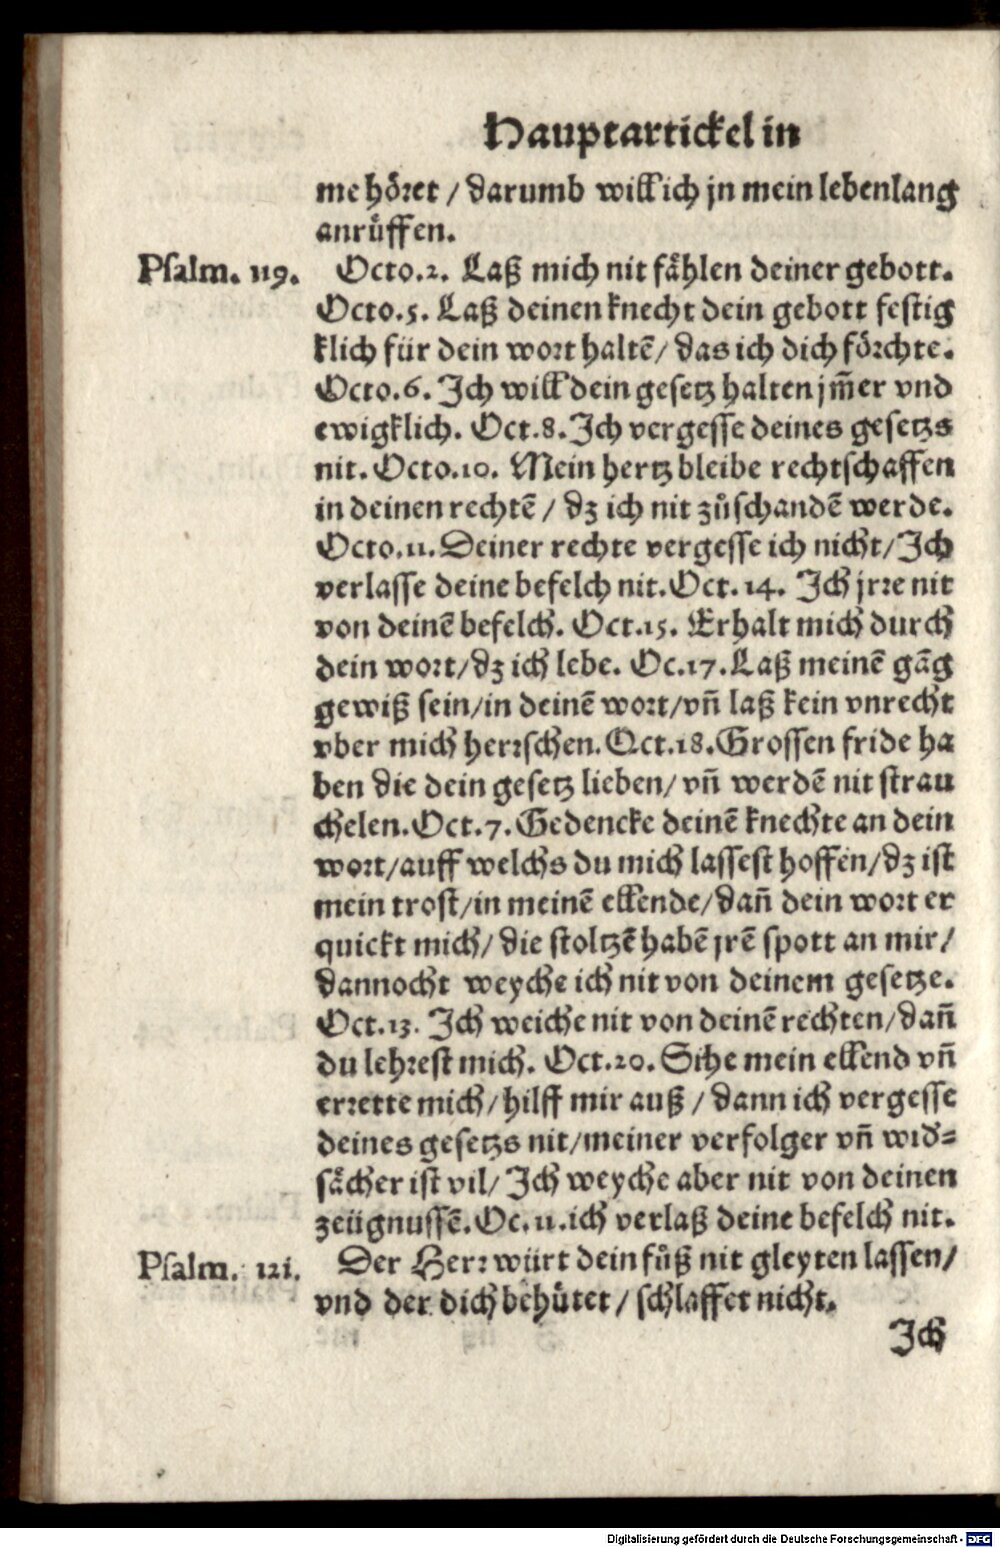 Hauptartickel in
me höret / darumb will ich jn mein lebenlang
anrůffen.
Psalm. 119. Octo.2. Laß mich nit fählen deiner gebott.
Octo.5. Laß deinen knecht dein gebott festig
klich für dein wort haltẽ/ das ich dich förchte.
Octo.6. Ich will dein gesetz halten jm̃er vnd
ewigklich. Oct.8. Ich vergesse deines gesetzs
nit. Octo.10. Mein hertz bleibe rechtschaffen
in deinen rechtẽ / dz ich nit zůschandẽ werde.
Octo.11. Deiner rechte vergesse ich nicht/ Ich
verlasse deine befelch nit. Oct. 14. Ich jrre nit
von deinẽ befelch. Oct.15. Erhalt mich durch
dein wort/ dz ich lebe. Oc.17. Laß meinẽ gãg
gewiß sein/ in deinẽ wort/ vñ laß kein vnrecht
vber mich herrschen. Oct.18. Grossen fride ha
ben die dein gesetz lieben/ vñ werdẽ nit strau
chelen. Oct.7. Gedencke deinẽ knechte an dein
wort/ auff welchs du mich lassest hoffen/ dz ist
mein trost/ in meinẽ ellende/ dañ dein wort er
quickt mich/ die stoltzẽ habẽ jrẽ spott an mir/
dannocht weyche ich nit von deinem gesetze.
Oct.13. Ich weiche nit von deinẽ rechten/ dañ
du lehrest mich. Oct.20. Sihe mein ellend vñ
errette mich/ hilff mir auß / dann ich vergesse
deines gesetzs nit/ meiner verfolger vñ wid=
sächer ist vil/ Ich weyche aber nit von deinen
zeügnussẽ. Oc.11. ich verlaß deine befelch nit.
Psalm. 121. Der Herr würt dein fůß nit gleyten lassen/
vnd der dich behütet / schlaffet nicht.
Ich
Digitalisierung gefördert durch die Deutsche Forschungsgemeinschaft - DFG